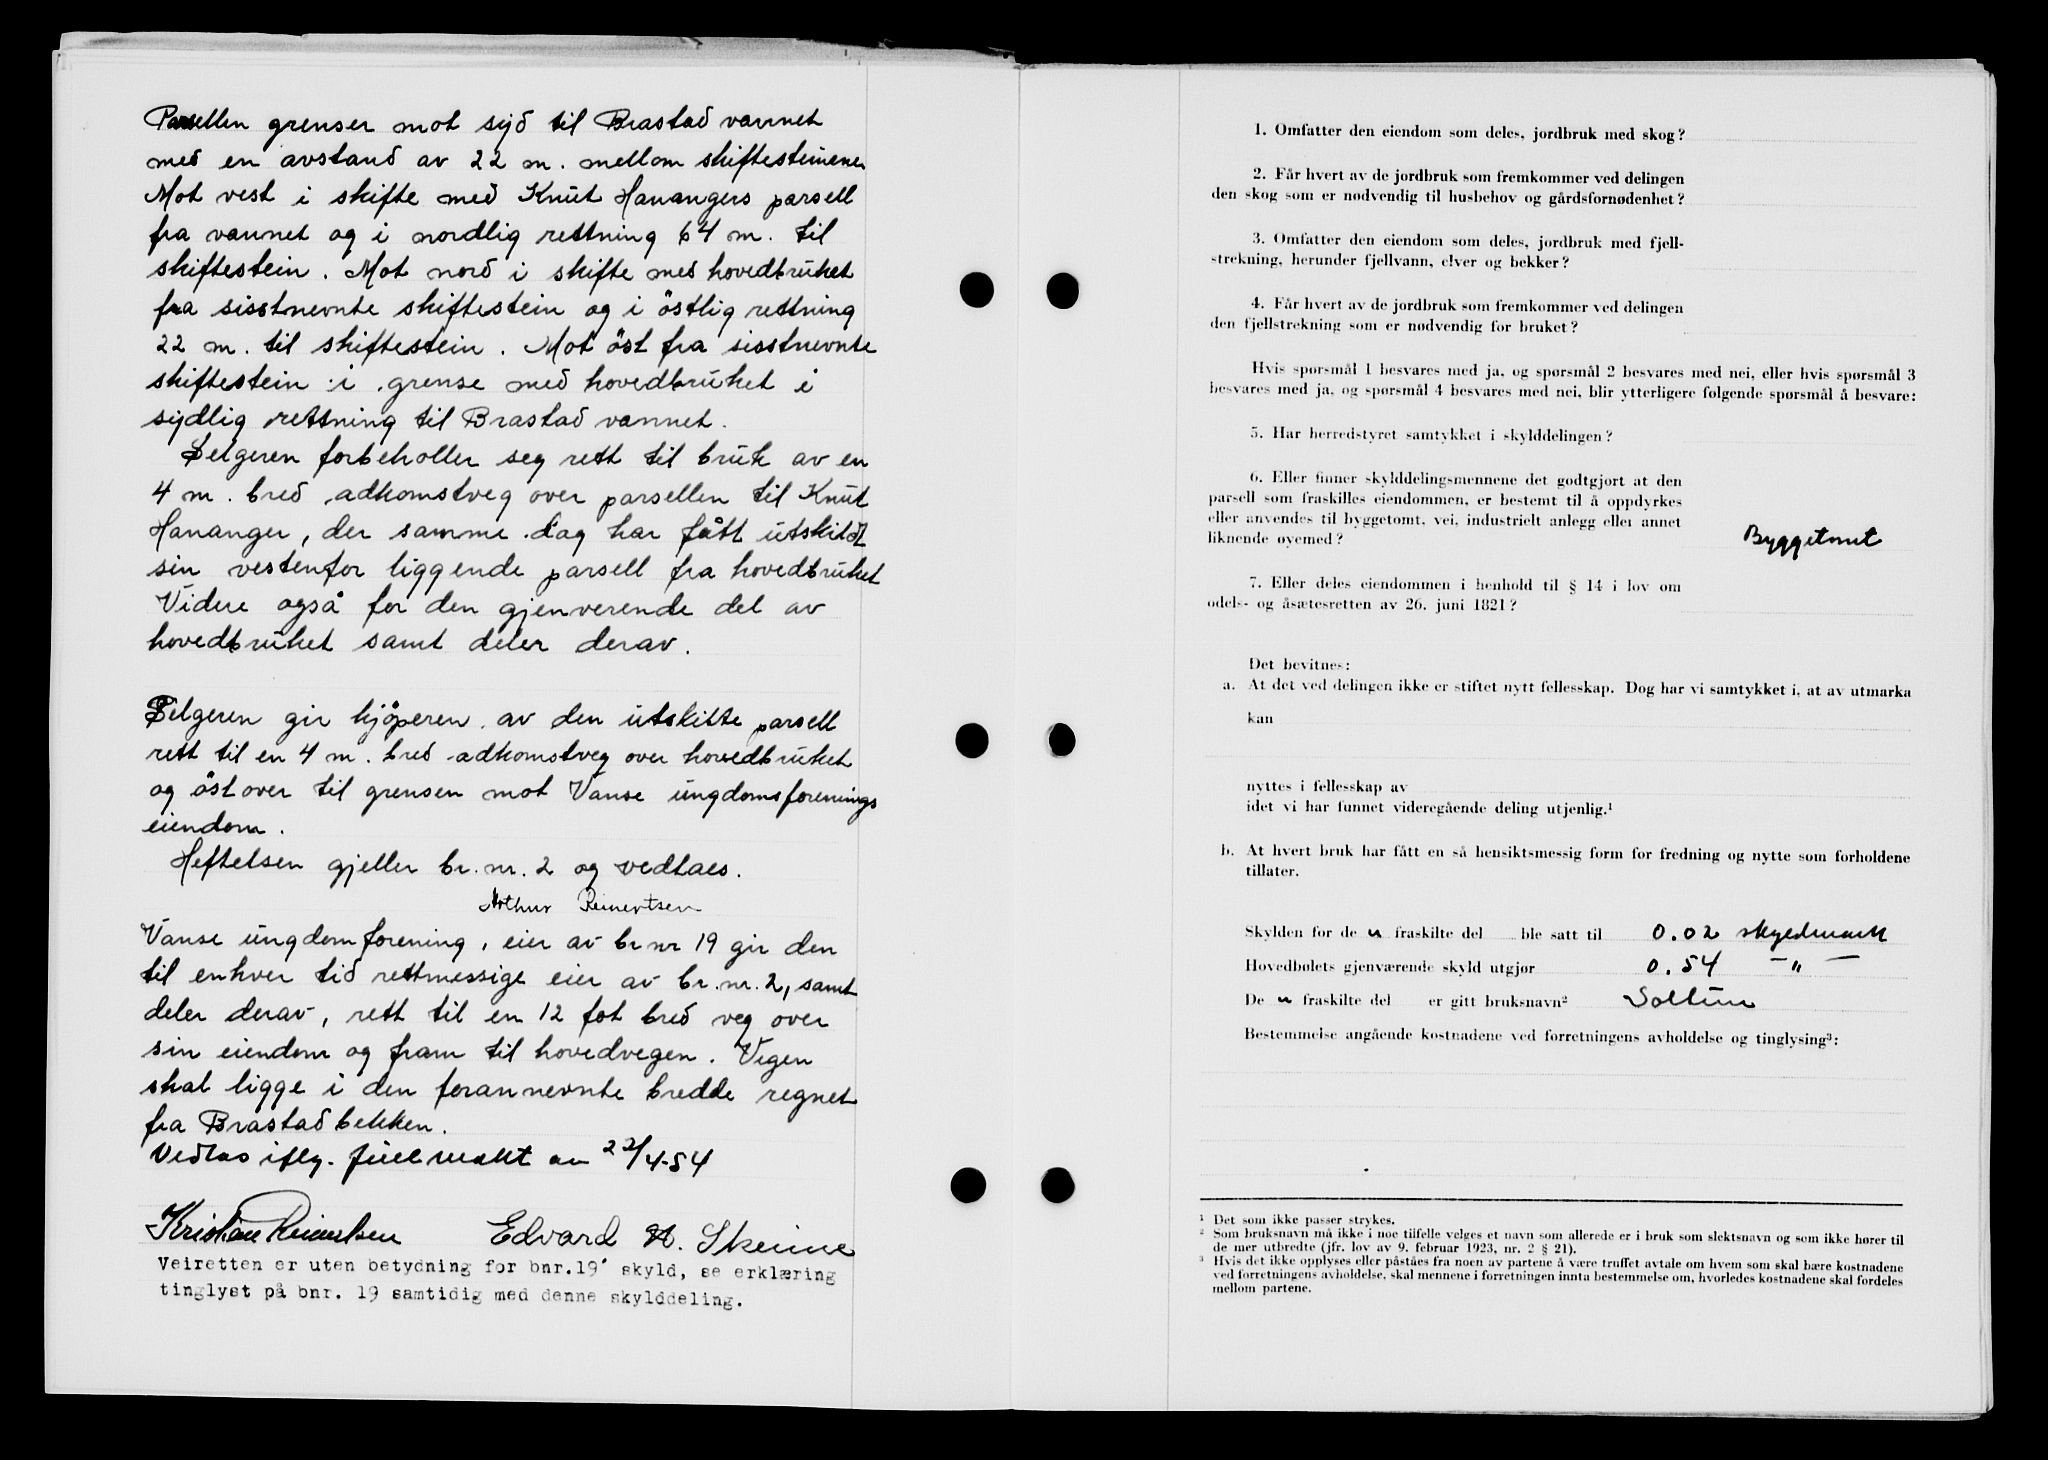 Parsellen grenser mot syd til Brastad vannet
med en avstand av 22 m. mellom skiftesteinene
Mot vest i skifte med Knut Hanangers parsell
fra vannet og i nordlig rettning 64 m. til
skiftestein. Mot nord i skifte med hovedbruket
fra sisstnevnte skiftestein og i östlig rettning
22 m. til skiftestein. Mot öst fra sisstnevnte
skiftestein i grense med hovedbruket i
sydlig rettning til Brastad vannet.
Selgeren forbeholler seg rett til bruk av en
4 m. bred adkomstveg over parsellen til Knut
Hananger, der samme dag har fått utskildt
sin vestenfor liggende parsell fra hovedbruket
Videre også for den gjenverende del av
hovedbruket samt deler derav.
Selgeren gir kjöperen av den utskilte parsell
rett til en 4 m. bred adkomstveg over hovedbruket
og östover til grensen mot Vanse ungdomsforenings
eiendom.
Heftelsen gjeller br. nr. 2 og vedtaes.
Arthur Reinertsen
Vanse ungdomforening, eier av br nr 19 gir den
til enhver tid rettmessige eier av br. nr. 2, samt
deler derav, rett til en 12 fot bred veg over
sin eiendom og fram til hovedvegen. Vegen
skal ligge i den forannevnte bredde regnet
fra Brastad bekken.
Vedtas iflg. fullmakt av 22/4-54
Kristian Reinertsen Edvard A. Skeime
Veiretten er uten betydning for bnr.19' skyld, se erklæring
tinglyst på bnr. 19 samtidig med denne skylddeling.
1. Omfatter den eiendom som deles, jordbruk med skog?
2. Får hvert av de jordbruk som fremkommer ved delingen
den skog som er nødvendig til husbehov og gårdsfornødenhet?
3. Omfatter den eiendom som deles, jordbruk med fjell-
strekning, herunder fjellvann, elver og bekker?
4. Får hvert av de jordbruk som fremkommer ved delingen
den fjellstrekning som er nødvendig for bruket?
Hvis spørsmål 1 besvares med ja, og spørsmål 2 besvares med nei, eller hvis spørsmål 3
besvares med ja, og spørsmål 4 besvares med nei, blir ytterligere følgende spørsmål å besvare:
5. Har herredstyret samtykket i skylddelingen?
6. Eller finner skylddelingsmennene det godtgjort at den
parsell som fraskilles eiendommen, er bestemt til å oppdyrkes
eller anvendes til byggetomt, vei, industrielt anlegg eller annet
liknende øyemed? Byggetomt
7. Eller deles eiendommen i henhold til § 14 i lov om
odels- og åsætesretten av 26. juni 1821?
Det bevitnes:
a. At det ved delingen ikke er stiftet nytt fellesskap. Dog har vi samtykket i, at av utmarka
kan
nyttes i fellesskap av
idet vi har funnet videregående deling utjenlig.¹
b. At hvert bruk har fått en så hensiktsmessig form for fredning og nytte som forholdene
tillater.
Skylden for de n fraskilte del ble satt til 0.02 skyldmark
Hovedbølets gjenværende skyld utgjør 0.54 — " —
De n fraskilte del er gitt bruksnavn² Soltun
Bestemmelse angående kostnadene ved forretningens avholdelse og tinglysing³:
¹ Det som ikke passer strykes.
² Som bruksnavn må ikke i noe tilfelle velges et navn som allerede er i bruk som slektsnavn og som ikke hører til
de mer utbredte (jfr. lov av 9. februar 1923, nr. 2 § 21).
³ Hvis det ikke opplyses eller påståes fra noen av partene å være truffet avtale om hvem som skal bære kostnadene
ved forretningens avholdelse, skal mennene i forretningen innta bestemmelse om, hvorledes kostnadene skal fordeles
mellom partene.